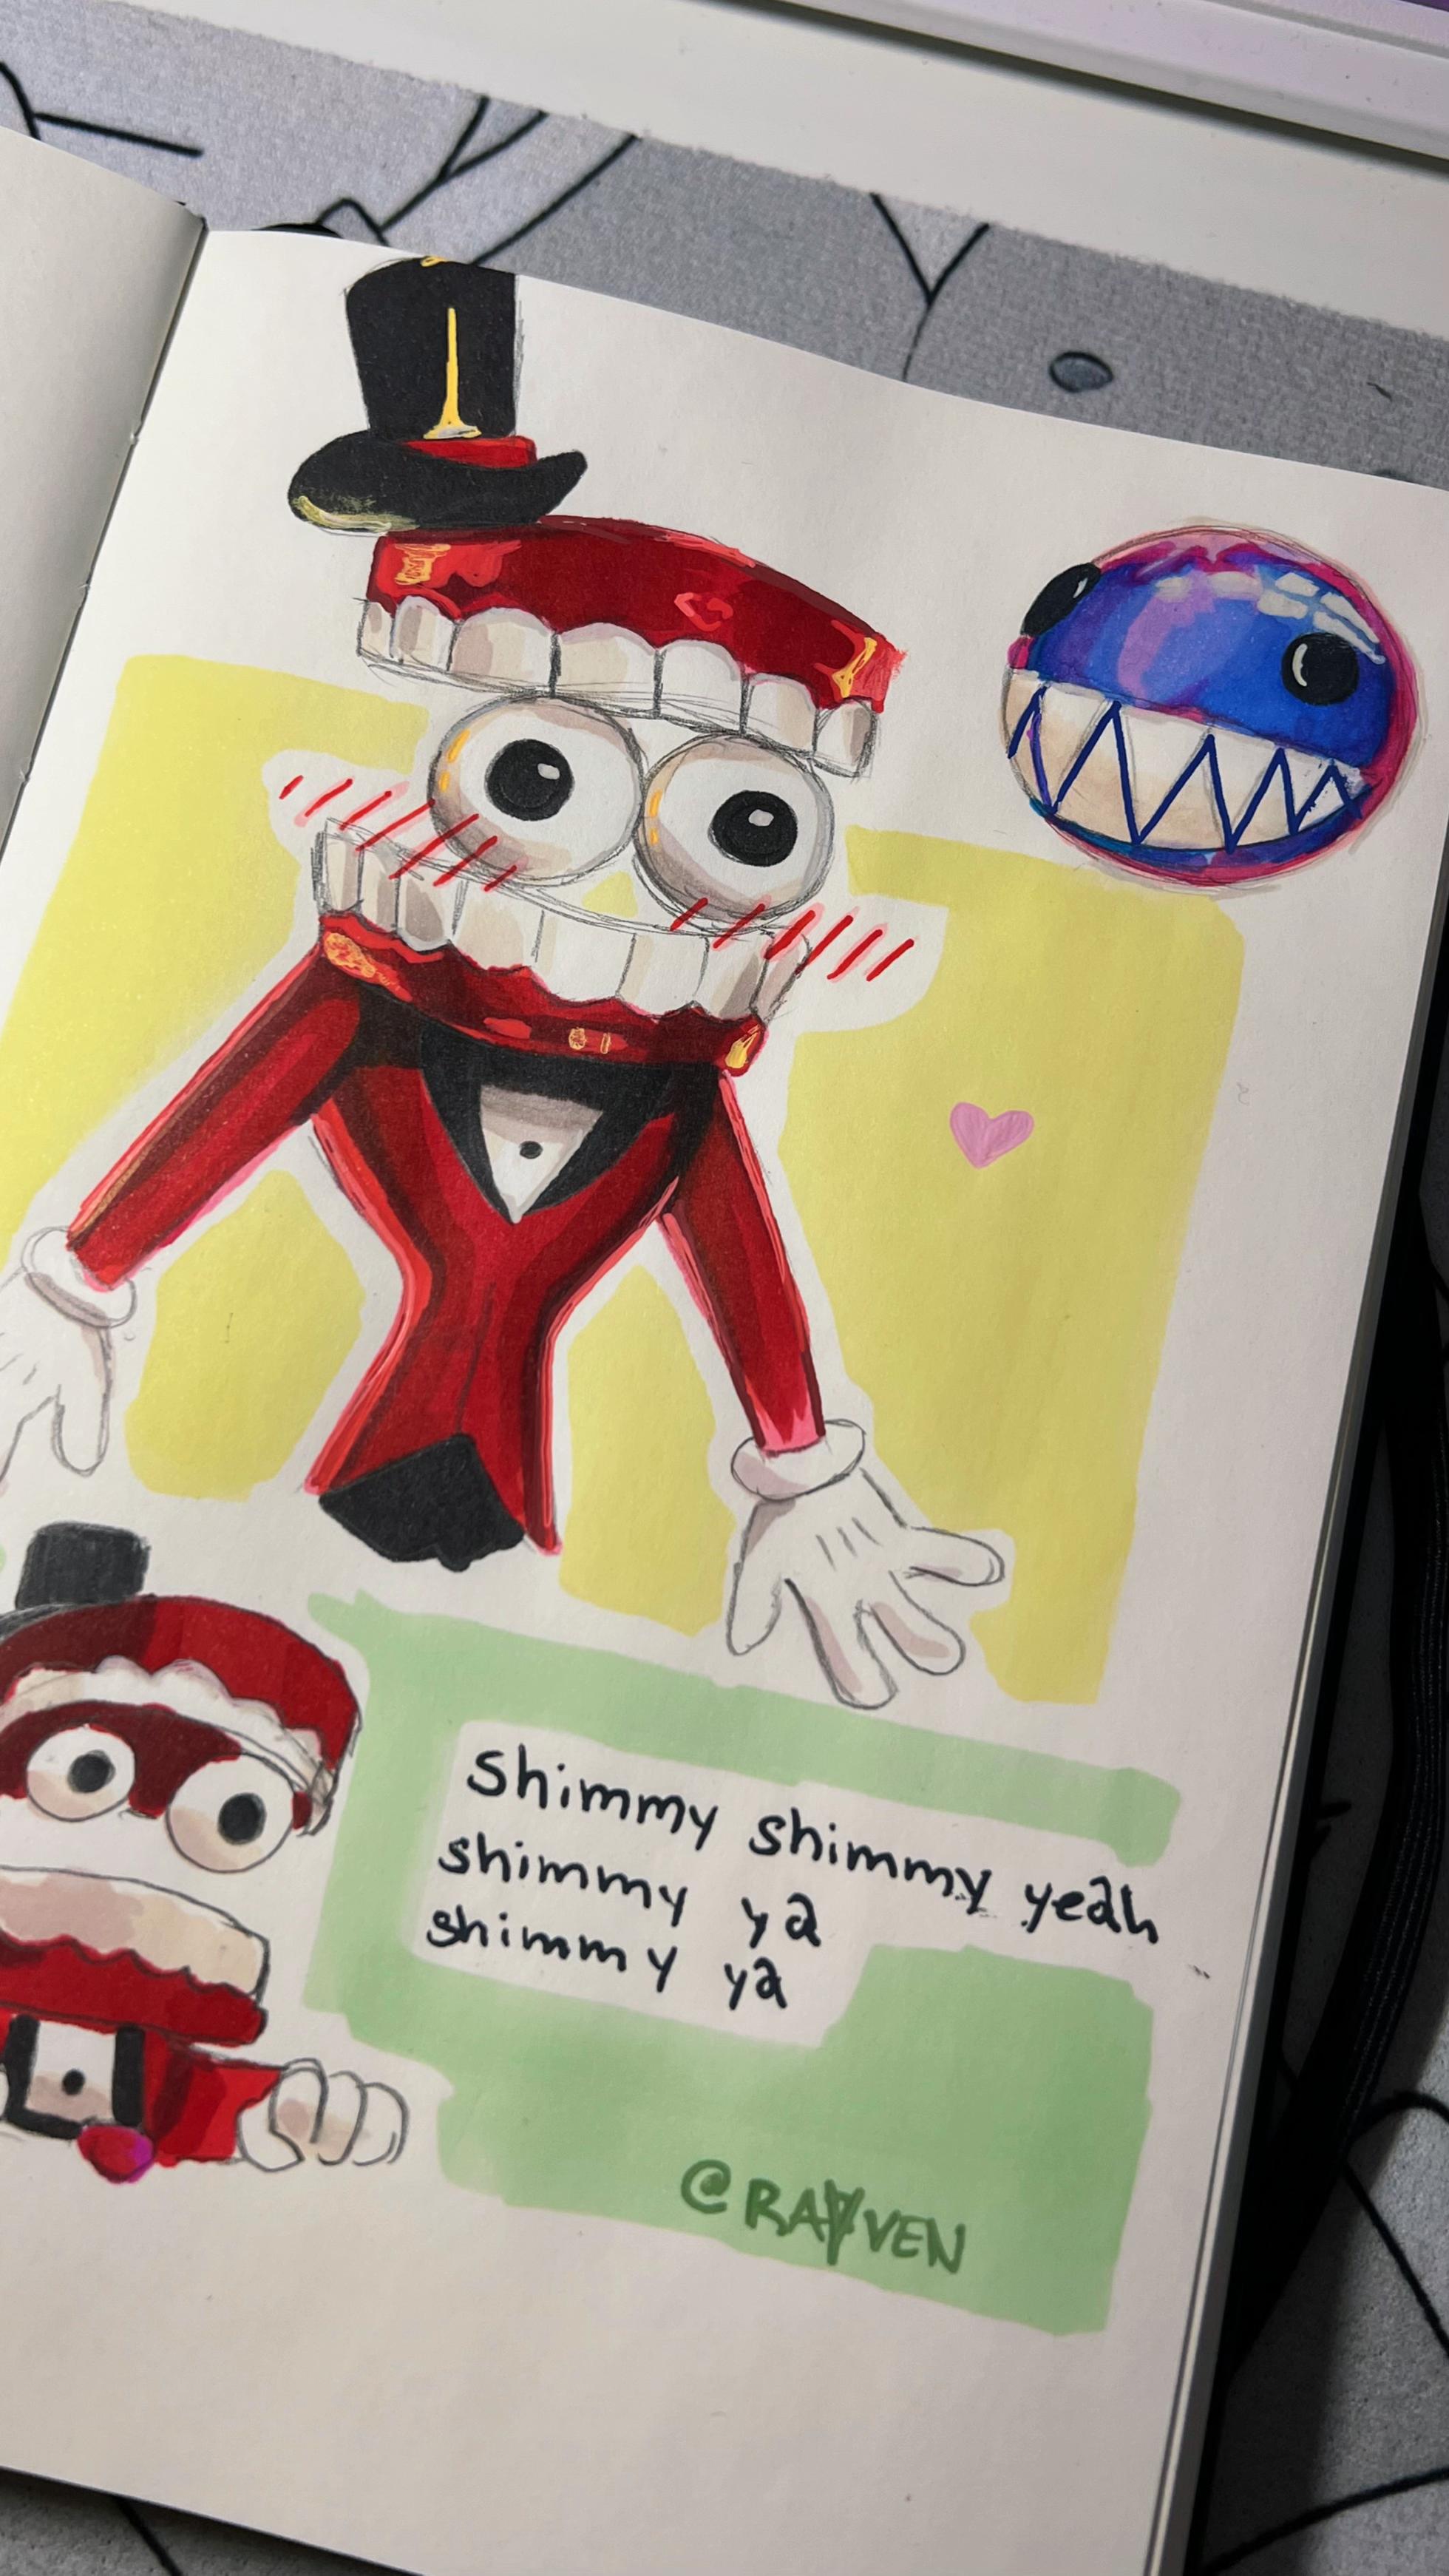 Shimmy shimmy yeah
shimmy ya
shimmy ya
@RAYVEN